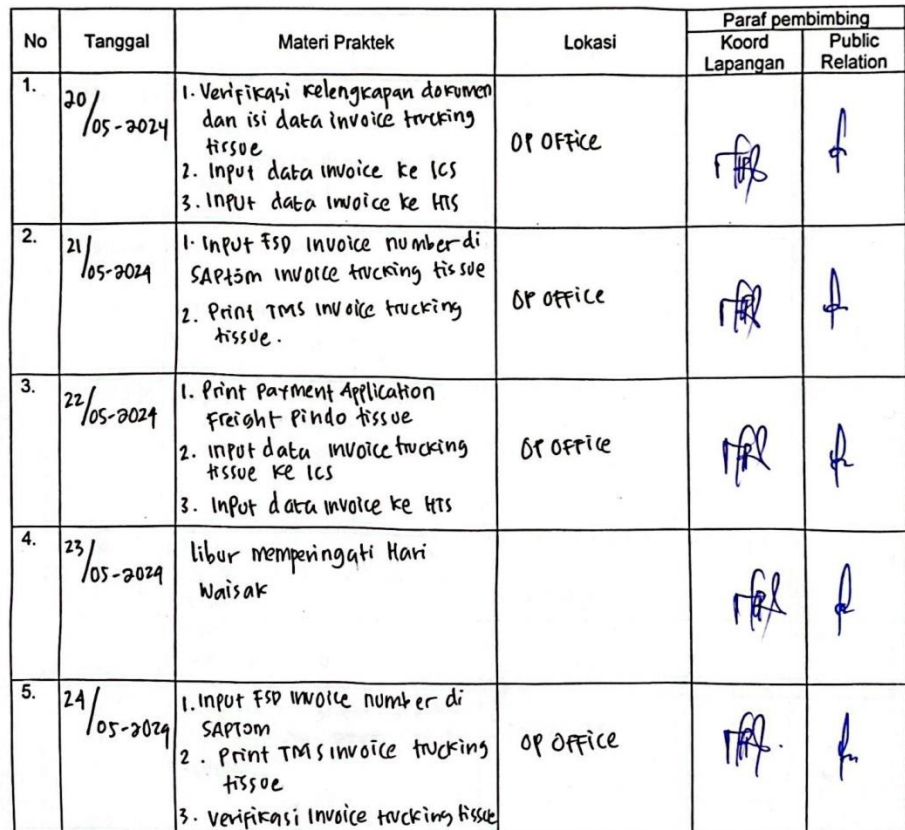 No Tanggal Materi Praktek Lokasi Paraf pembimbing
Koord Lapangan Public Relation
1. 20/05-2024
1. Verifikasi kelengkapan dokumen
dan isi data invoice trucking
tissue
2. Input data invoice ke ICS
3. Input data invoice ke HTS
OP OFFice
2. 21/05-2024
1. Input FSD invoice number di
SAPTOM invoice trucking tissue
2. Print TMS invoice trucking
tissue.
OP OFFice
3. 22/05-2024
1. Print Payment Application
Freight Pindo tissue
2. Input data invoice trucking
tissue ke ICS
3. Input data invoice ke HTS
OP OFFice
4. 23/05-2024
libur memperingati Hari
Waisak
5. 24/05-2024
1. Input FSD invoice number di
SAPTOM
2. Print TMS invoice trucking
tissue
3. Verifikasi Invoice trucking tissue
OP OFFice